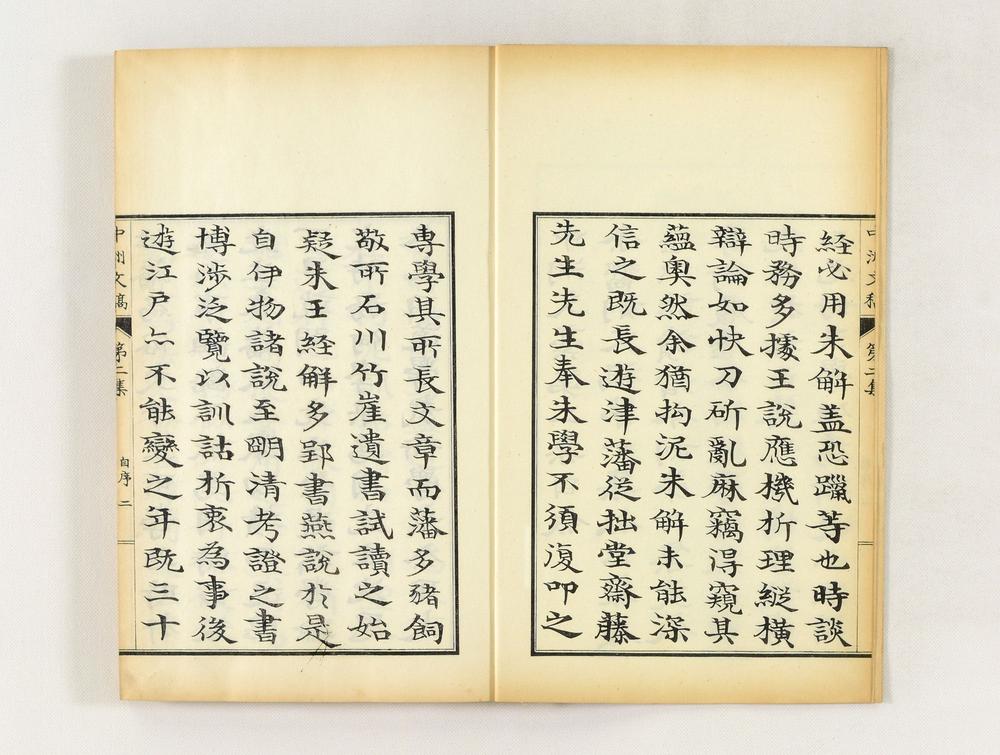 経必用朱解盖恐躐等也時談
時務多據王説應機析理縱橫
辯論如快刀斫亂麻竊得窺其
蘊奧然余猶拘泥朱解未能深
信之既長遊津藩從拙堂齋藤
先生先生奉朱學不須復叩之
專學其所長文章而藩多豬飼
敬所石川竹崖遺書試讀之始
疑朱王経解多郢書燕説於是
自伊物諸説至明清考證之書
博涉泛覽以訓詁折衷為事後
遊江戸亦不能變之年既三十
中洲文稿 第二集 自序 二